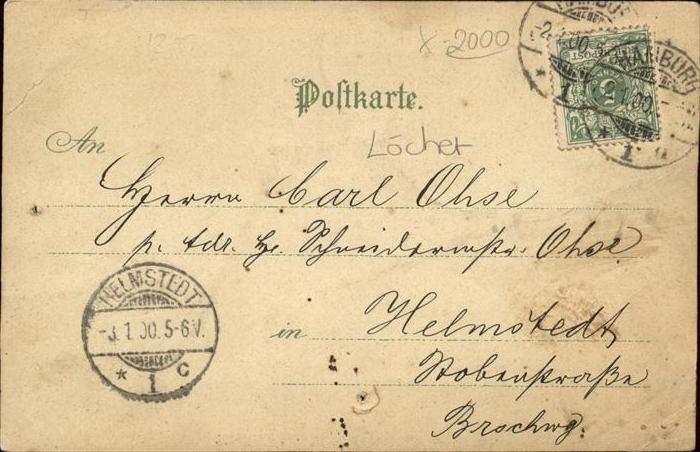 X-2000
12-
Postkarte.
An
Löcher
Herrn Carl Ohse
p. Adr. Hr. Schneidermstr. Ohse
in Helmstedt
Stobenstraße
Brschwg.
HELMSTEDT
-3.1.00.5-6V.
* 1 c
HARBURG
1 a
5